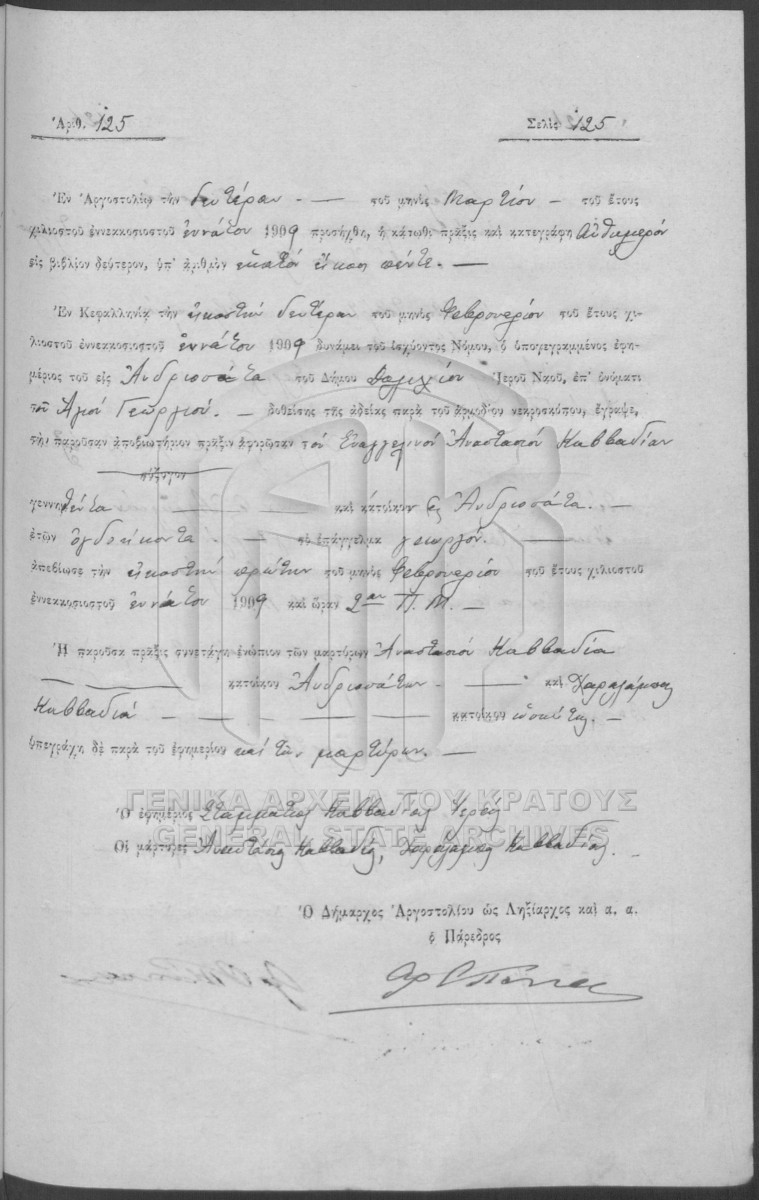 Ἀριθ. 125
Σελὶς 125
Ἐν Ἀργοστολίῳ τὴν δευτέραν - — τοῦ μηνὸς Μαρτίου - τοῦ ἔτους
χιλιοστοῦ ἐννεακοσιοστοῦ ἐννάτου 1909 προσήχθη, ἡ κάτωθι πρᾶξις καὶ κατεγράφη αὐθημερὸν
εἰς βιβλίον δεύτερον, ὑπ' ἀριθμὸν ἑκατὸν εἴκοσι πέντε. —
Ἐν Κεφαλληνίᾳ τὴν εἰκοστὴν δευτέραν τοῦ μηνὸς Φεβρουαρίου τοῦ ἔτους χι-
λιοστοῦ ἐννεακοσιοστοῦ ἐννάτου 1909 δυνάμει τοῦ ἰσχύοντος Νόμου, ὁ ὑπογεγραμμένος ἐφη-
μέριος τοῦ εἰς Ἀνδριοσάτα τοῦ Δήμου Ἱεροῦ Ναοῦ, ἐπ' ὀνόματι
τοῦ Ἁγίου Γεωργίου. — δοθείσης τῆς ἀδείας παρὰ τοῦ ἁρμοδίου νεκροσκόπου, ἔγραψε,
τὴν παροῦσαν ἀποβιωτήριον πρᾶξιν ἀφορῶσαν τὸν Εὐαγγελινὸν Ἀναστασίου Καββαδίαν
σύζυγον
γεννηθέντα — καὶ κάτοικον εἰς Ἀνδριοσάτα. —
ἐτῶν ὀγδοήκοντα — τὸ ἐπάγγελμα γεωργόν. —
ἀπεβίωσε τὴν εἰκοστὴν πρώτην τοῦ μηνὸς Φεβρουαρίου τοῦ ἔτους χιλιοστοῦ
ἐννεακοσιοστοῦ ἐννάτου 1909 καὶ ὥραν 2αν Π.Μ. —
Ἡ παροῦσα πρᾶξις συνετάγη ἐνώπιον τῶν μαρτύρων Ἀναστασίου Καββαδία
— κατοίκου Ἀνδριοσάτων - — καὶ Χαραλάμπου
Καββαδία - — — — — — κατοίκου ὡσαύτως. —
ὑπεγράφη δὲ παρὰ τοῦ ἐφημερίου καὶ τῶν μαρτύρων. —
ΓΕΝΙΚΑ ΑΡΧΕΙΑ ΤΟΥ ΚΡΑΤΟΥΣ
GENERAL STATE ARCHIVES
Ὁ ἐφημέριος Σταμμάτιος Καββαδίας Ἱερεύς
Οἱ μάρτυρες Ἀναστάσιος Καββαδίας, Χαράλαμπος Καββαδίας.
Ὁ Δήμαρχος Ἀργοστολίου ὡς Ληξίαρχος καὶ α. α.
ὁ Πάρεδρος